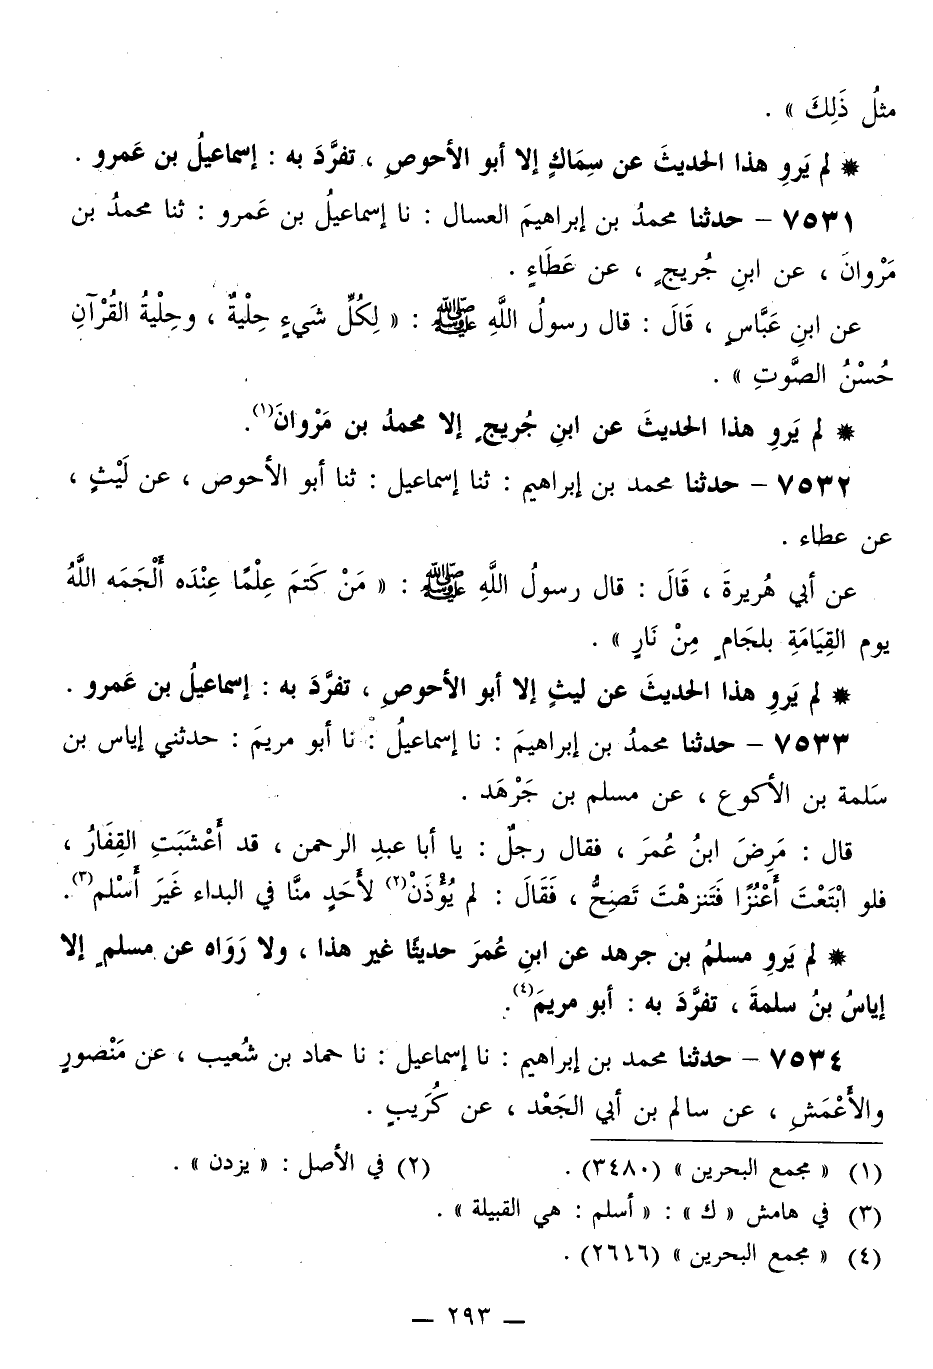 مثلُ ذَلِكَ » .
* لم يَروِ هذا الحديثَ عن سِمَاكٍ إلا أبو الأحوصِ ، تفرَّدَ به : إسماعيلُ بن عَمرو .
٧٥٣١ – حدثنا محمدُ بن إبراهيمَ العسال : نا إسماعيلُ بن عَمرو : ثنا محمدُ بن
مَرْوانَ ، عن ابنِ جُريجٍ ، عن عَطَاءٍ .
عن ابنِ عَبَّاسٍ ، قَالَ : قال رسولُ اللَّهِ ﷺ : « لِكُلِّ شَيءٍ حِلْيةٌ ، وحِلْيةُ القُرْآنِ
حُسْنُ الصَّوتِ » .
* لم يَروِ هذا الحديثَ عن ابنِ جُريجٍ إلا محمدُ بن مَرْوانَ(١).
٧٥٣٢ – حدثنا محمد بن إبراهيم : ثنا إسماعيل : ثنا أبو الأحوص ، عن لَيْثٍ ،
عن عطاء .
عن أبي هُريرةَ ، قَالَ : قال رسولُ اللَّهِ ﷺ : « مَنْ كَتمَ عِلْمًا عِنْدَه أَلْجَمَه اللَّهُ
يوم القِيَامَةِ بلجَامٍ مِنْ نَارٍ » .
* لم يَروِ هذا الحديثَ عن ليثٍ إلا أبو الأحوصِ ، تفرَّدَ به : إسماعيلُ بن عَمرو .
٧٥٣٣ – حدثنا محمدُ بن إبراهيمَ : نا إسماعيلُ : نا أبو مريمَ : حدثني إياس بن
سَلمة بن الأكوع ، عن مسلم بن جَرْهَد .
قال : مَرِضَ ابنُ عُمرَ ، فقال رجلٌ : يا أبا عبدِ الرحمن ، قد أَعْشَبَتِ القِفَارُ ،
فلو ابْتَعْتَ أَعْنُزًا فَتَنزهْتَ تَصِحُّ ، فَقَالَ : لم يُؤْذَنْ(٢) لأَحَدٍ منَّا في البداء غَيرَ أَسْلم(٣).
* لم يَروِ مسلمُ بن جرهد عن ابنِ عُمرَ حديثًا غير هذا ، ولا رَوَاه عن مسلمٍ إلا
إياسُ بنُ سلمةَ ، تفرَّدَ به : أبو مريمَ(٤).
٧٥٣٤ – حدثنا محمد بن إبراهيم : نا إسماعيل : نا حماد بن شُعيب ، عن مَنْصورٍ
والأَعْمَشِ ، عن سالم بن أبي الجَعْد ، عن كُرَيبٍ .
(١) « مجمع البحرين » (٣٤٨٠) . (٢) في الأصل : « يزدن » .
(٣) في هامش « ك » : « أسلم : هي القبيلة » .
(٤) « مجمع البحرين » (٢٦١٦) .
– ٢٩٣ –